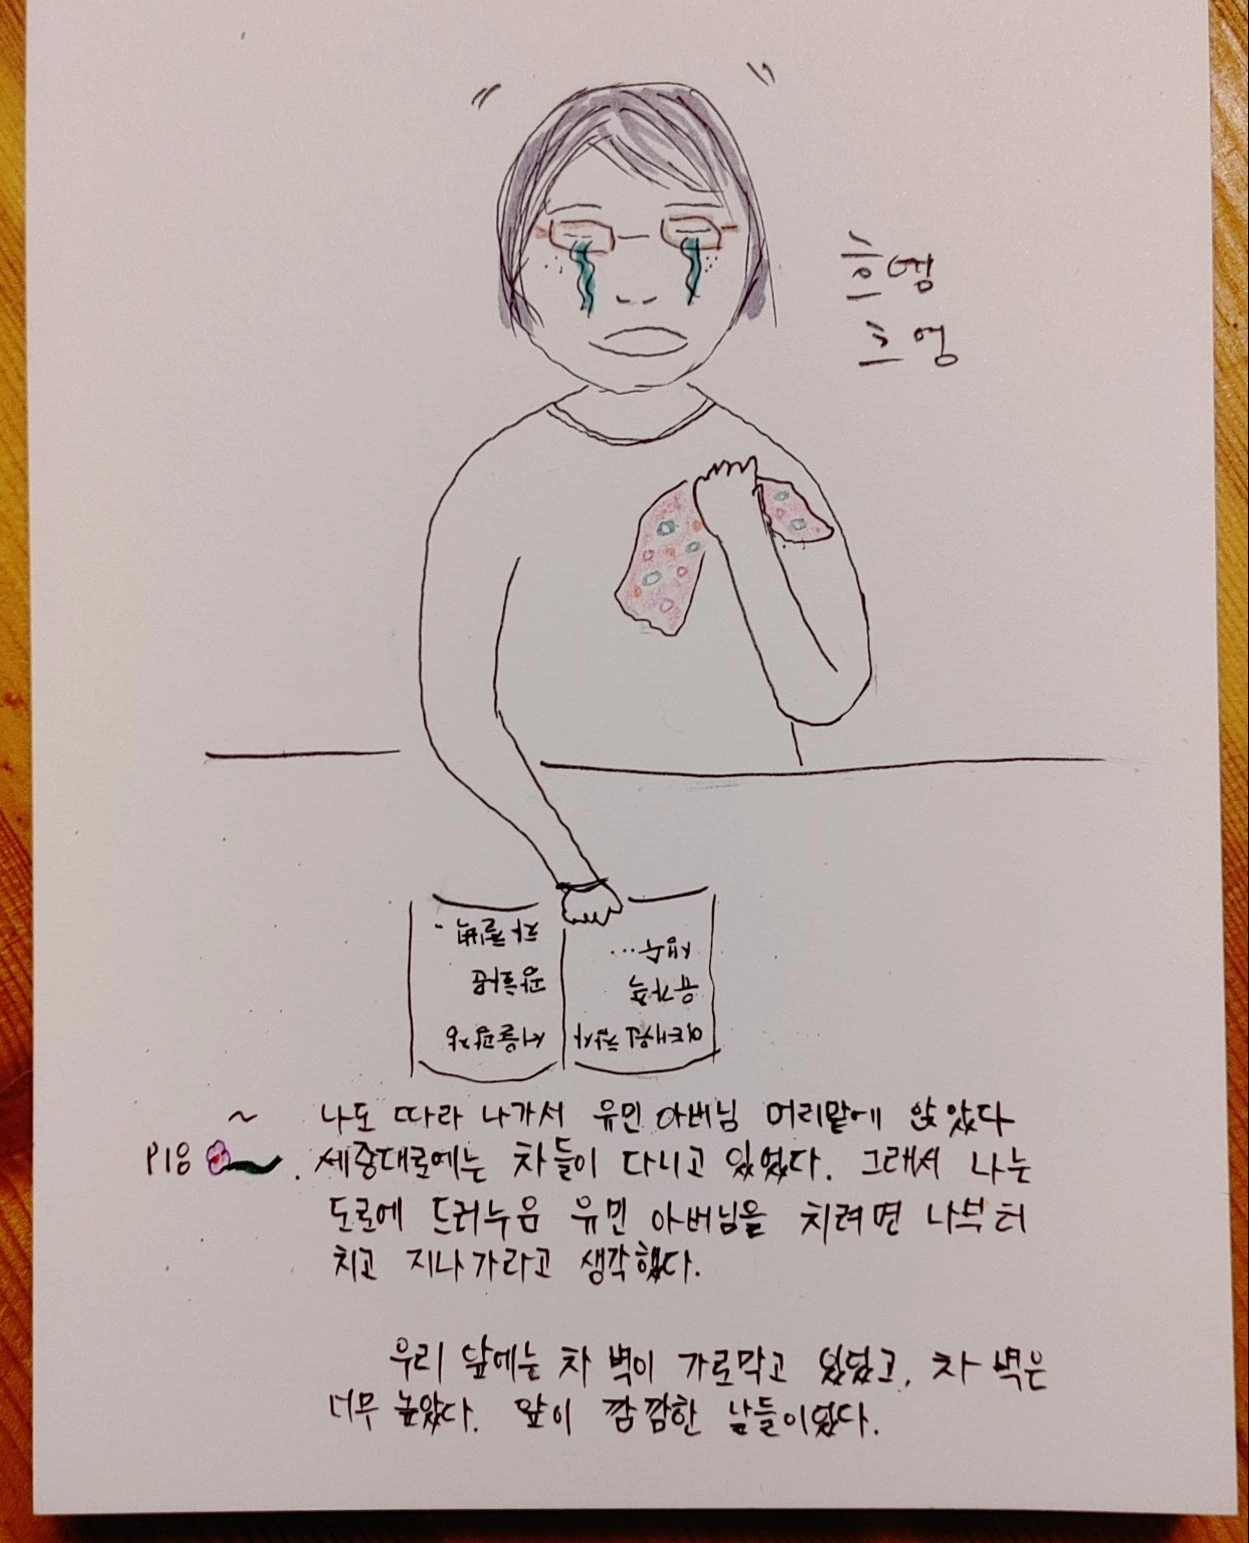 흐엥
흐엉
이태원 참사
유가족
서울광장
~ 나도 따라 나가서 유민 아버님 머리맡에 앉았다
P18 . 세종대로에는 차들이 다니고 있었다. 그래서 나는
도로에 드러누움 유민 아버님을 치려면 나부터
치고 지나가라고 생각했다.
우리 앞에는 차 벽이 가로막고 있었고, 차 벽은
너무 높았다. 앞이 깜깜한 날들이었다.